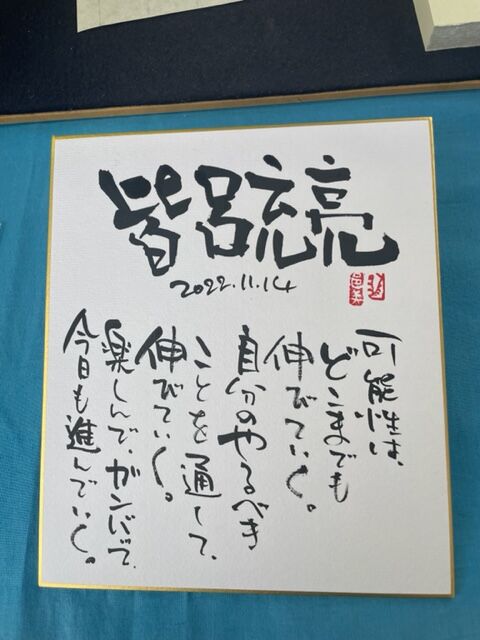 皆呂流亮
2022.11.14
可能性は、
どこまでも
伸びていく。
自分のやるべき
ことを通して、
伸びていく。
楽しんで、ガンバて、
今日も進んでいく。